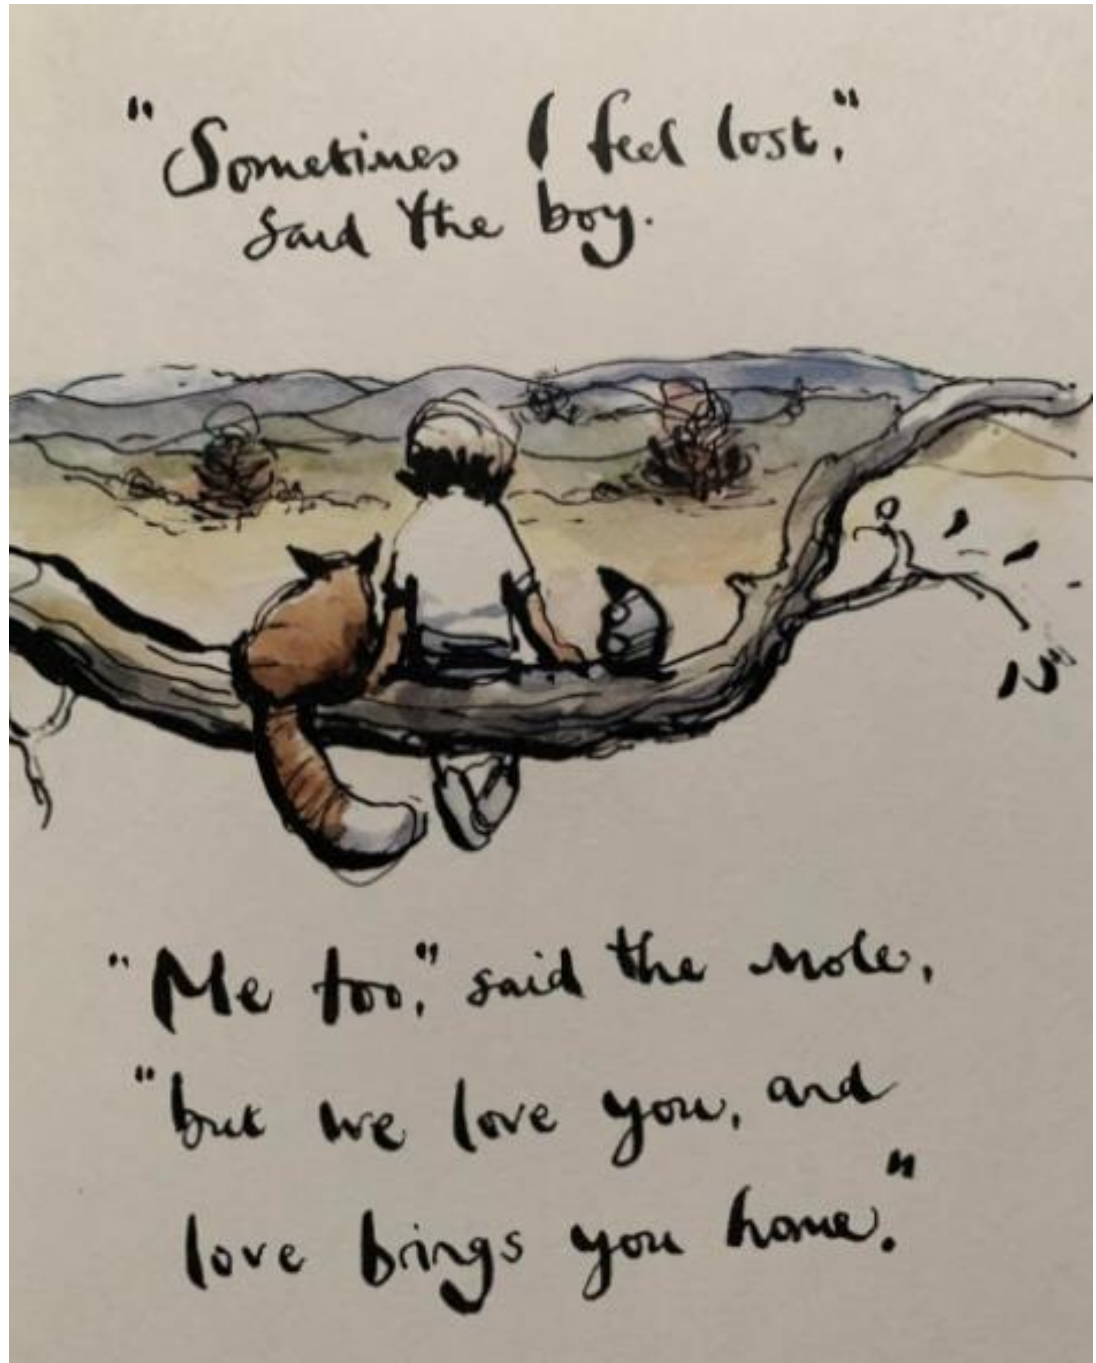 "Sometimes I feel lost,"
said the boy.
"Me too," said the mole,
"but we love you, and
love brings you home."